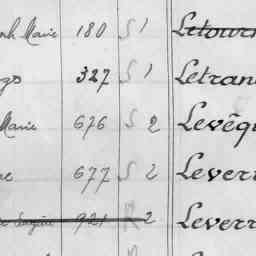 Marie 180 S 1 Letour
327 S 1 Letran
Marie 676 S 2 Levêq
677 S 2 Lever
921 R 2 Leverr
R